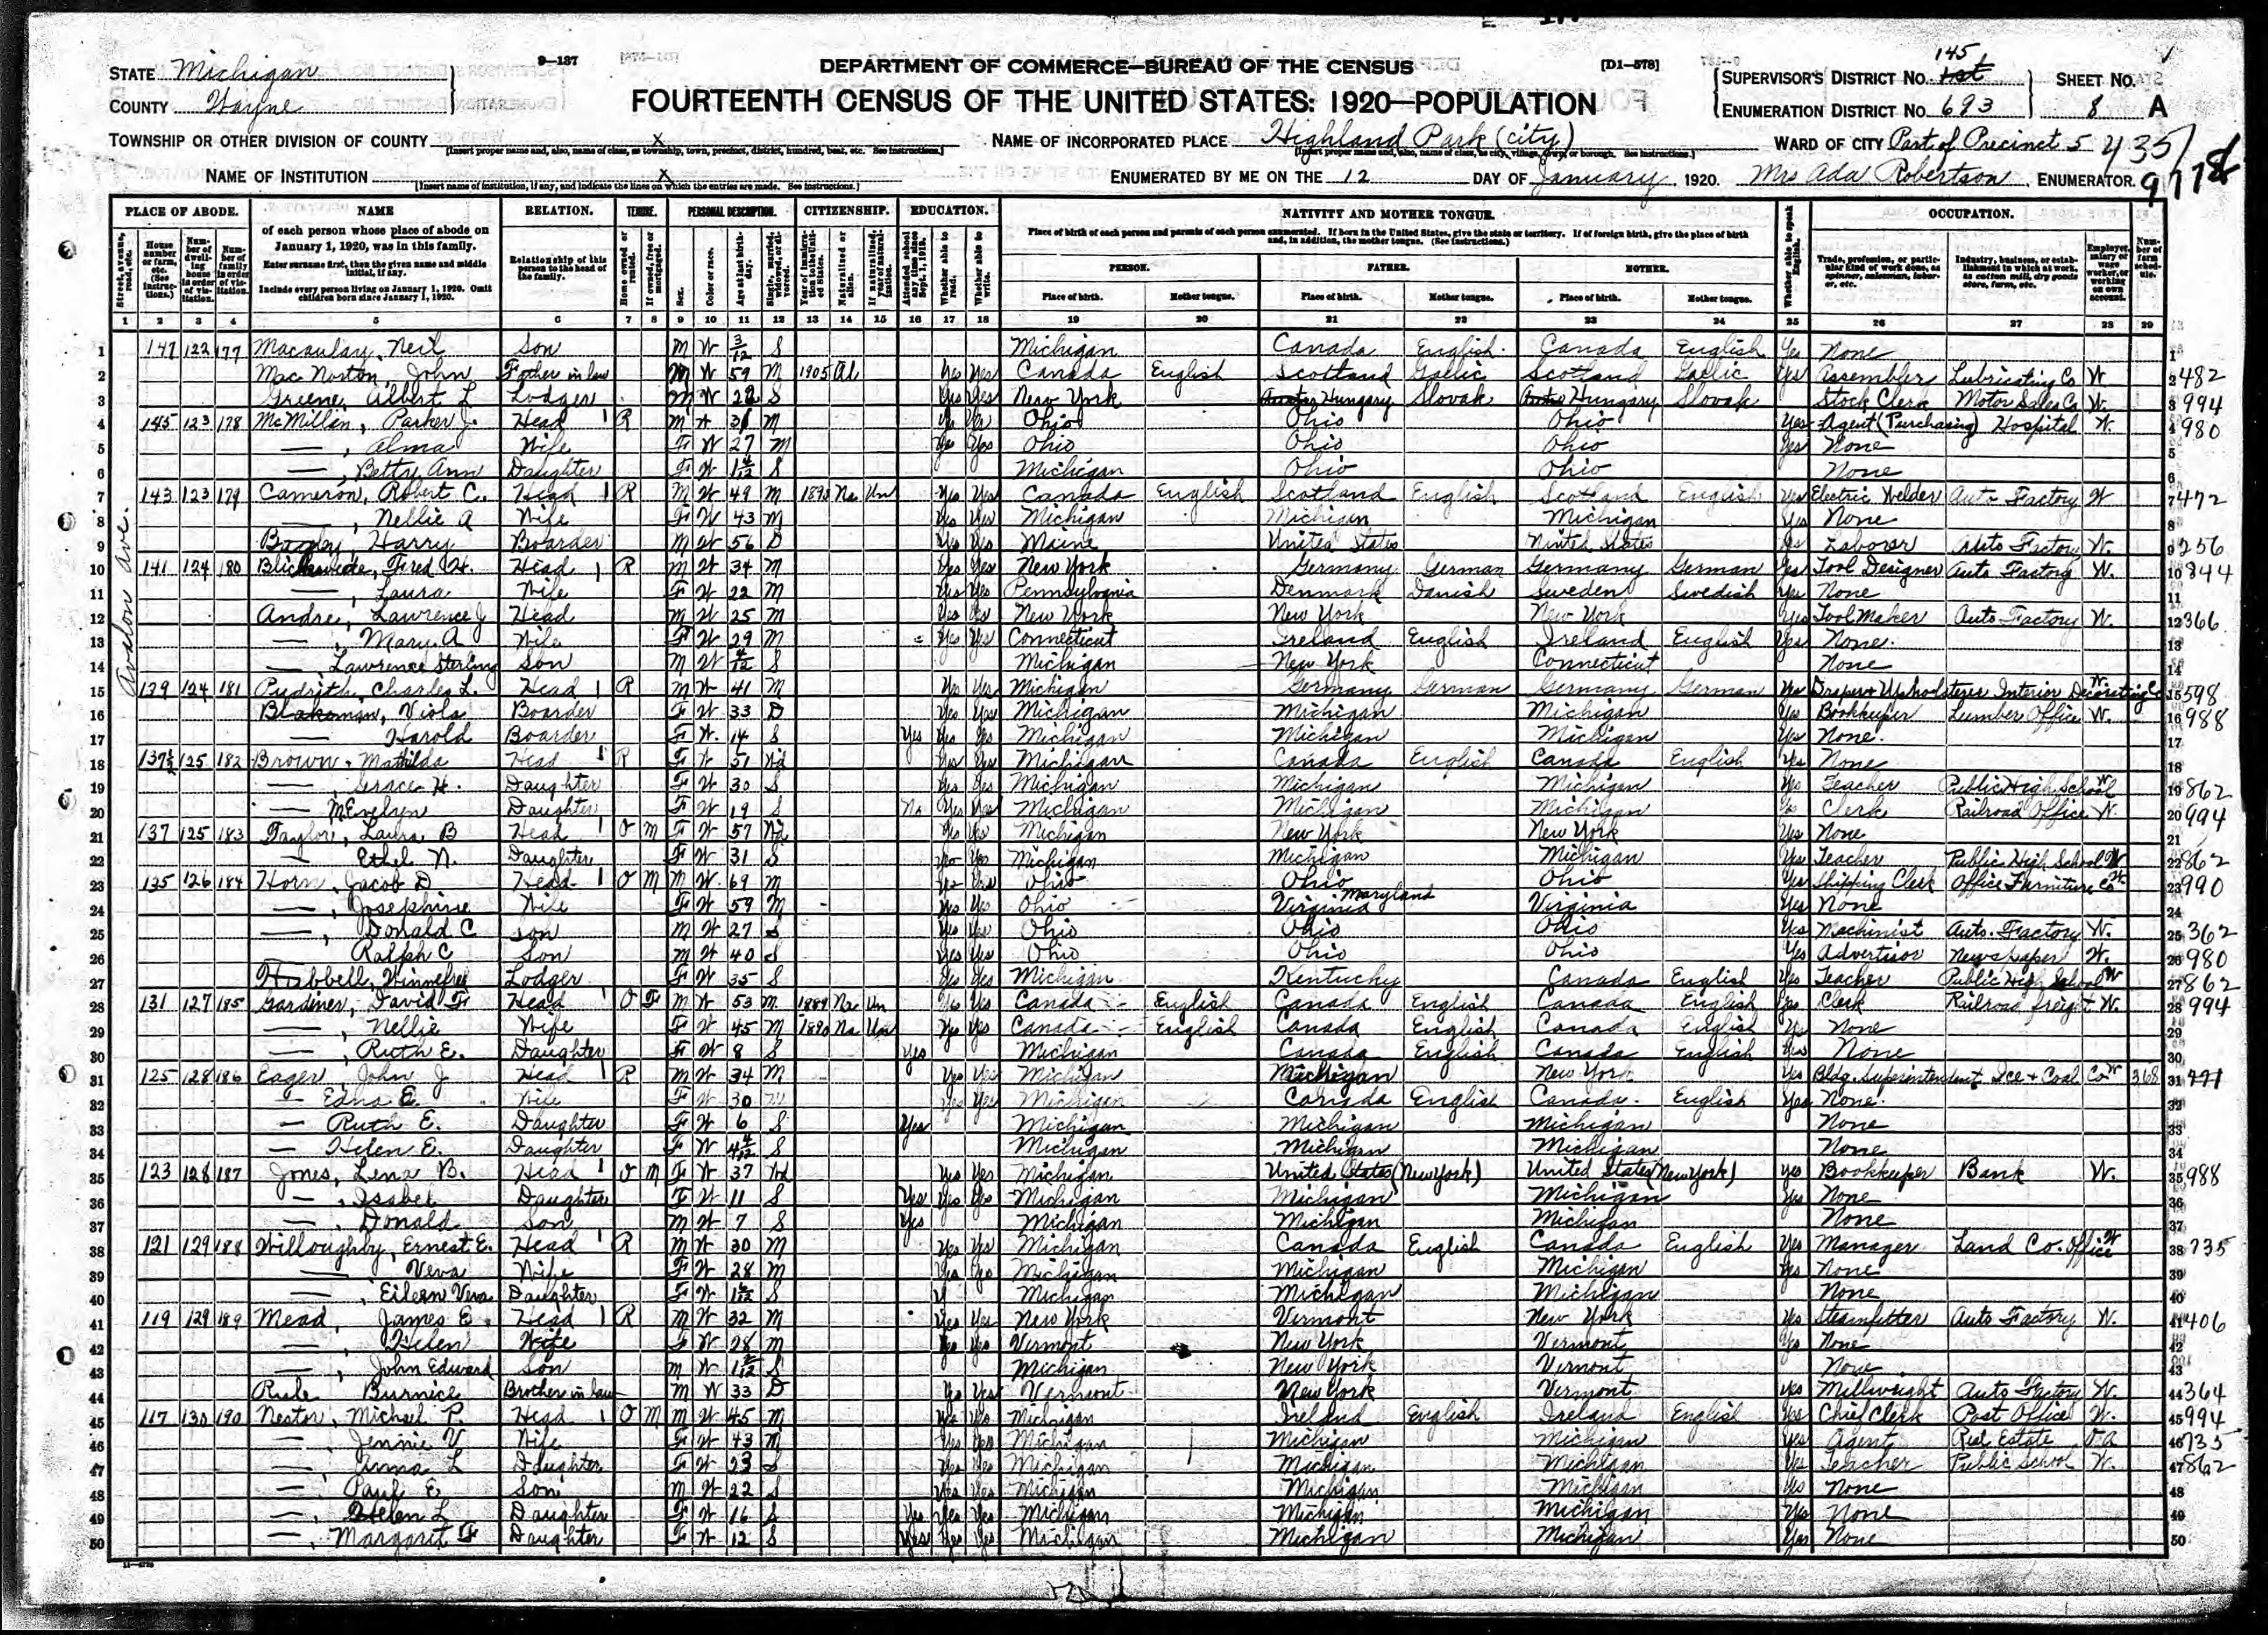 9—137 DEPARTMENT OF COMMERCE—BUREAU OF THE CENSUS [D1-578]
FOURTEENTH CENSUS OF THE UNITED STATES: 1920—POPULATION
STATE Michigan
COUNTY Wayne
145
SUPERVISOR'S DISTRICT No. 1st SHEET No.
ENUMERATION DISTRICT No. 693 8 A
TOWNSHIP OR OTHER DIVISION OF COUNTY x NAME OF INCORPORATED PLACE Highland Park (city) WARD OF CITY Part of Precinct 5
[Insert proper name and, also, name of class, as township, town, precinct, district, hundred, beat, etc. See instructions.] [Insert proper name and, also, name of class, as city, village, town, or borough. See instructions.]
NAME OF INSTITUTION x ENUMERATED BY ME ON THE 12 DAY OF January, 1920. Mrs Ada Robertson, ENUMERATOR.
[Insert name of institution, if any, and indicate the lines on which the entries are made. See instructions.]
PLACE OF ABODE. NAME RELATION. TENURE. PERSONAL DESCRIPTION. CITIZENSHIP. EDUCATION. NATIVITY AND MOTHER TONGUE. OCCUPATION.
of each person whose place of abode on January 1, 1920, was in this family.
Enter surname first, then the given name and middle initial, if any.
Include every person living on January 1, 1920. Omit children born since January 1, 1920.
Relationship of this person to the head of the family.
Place of birth of each person and parents of each person enumerated. If born in the United States, give the state or territory. If of foreign birth, give the place of birth and, in addition, the mother tongue. (See instructions.)
PERSON. FATHER. MOTHER.
Place of birth. Mother tongue. Place of birth. Mother tongue. Place of birth. Mother tongue.
1 2 3 4 5 6 7 8 9 10 11 12 13 14 15 16 17 18 19 20 21 22 23 24 25 26 27 28 29
Avalon Ave.
1 147 122 177 Macaulay, Neil Son M W 3/12 S Michigan Canada English Canada English Yes None
2 Mac Norton, John Father in law M W 59 M 1905 Al Yes Yes Canada English Scotland Gaelic Scotland Gaelic Yes Assembler Lubricating Co W 482
3 Greene, Albert L Lodger M W S Yes Yes New York Hungary Slovak Hungary Slovak Stock Clerk Motor Sales Co W. 994
4 145 123 178 McMillin, Parker J. Head R M W 31 M Yes Yes Ohio Ohio Ohio Yes Agent (Purchasing) Hospital W. 980
5 —, Alma Wife F W 27 M Yes Yes Ohio Ohio Ohio Yes None
6 —, Betty Ann Daughter F W 1 4/12 S Michigan Ohio Ohio None
7 143 123 179 Cameron, Robert C. Head R M W 49 M Na Un Yes Yes Canada English Scotland English Scotland English Yes Electric Welder Auto Factory W 472
8 —, Nellie A Wife F W 43 M Yes Yes Michigan Michigan Michigan Yes None
9 Harry Boarder M W 56 D Yes Yes Maine United States United States Yes Laborer Auto Factory W. 256
10 141 124 180 Fred H. Head R M W 34 M Yes Yes New York Germany German Germany German Yes Tool Designer Auto Factory W. 844
11 —, Laura Wife F W 22 M Yes Yes Pennsylvania Denmark Danish Sweden Swedish Yes None
12 Andre, Lawrence J Head M W 25 M Yes Yes New York New York New York Yes Tool Maker Auto Factory W. 366
13 —, Mary A Wife F W 29 M Yes Yes Connecticut Ireland English Ireland English Yes None.
14 — Lawrence Sterling Son M W 4/12 S Michigan New York Connecticut None
15 139 124 181 Pudrith, Charles L. Head R M W 41 M Yes Yes Michigan Germany German Germany German Yes Draper & Upholsterer Interior Decorating Co W. 598
16 Blakeman, Viola Boarder F W 33 D Yes Yes Michigan Michigan Michigan Yes Bookkeeper Lumber Office W. 988
17 — Harold Boarder F W. 14 S Yes Yes Yes Michigan Michigan Michigan Yes None.
18 137½ 125 182 Brown, Mathilda Head R F W 51 Wd Yes Yes Michigan Canada English Canada English Yes None
19 —, Grace H. Daughter F W 30 S Yes Yes Michigan Michigan Michigan Yes Teacher Public High School W 862
20 — M Evelyn Daughter F W 19 S No Yes Yes Michigan Michigan Michigan Yes Clerk Railroad Office W. 994
21 137 125 183 Taylor, Laura B Head O M F W 57 Wd Yes Yes Michigan New York New York Yes None
22 — Ethel N. Daughter F W 31 S Yes Yes Michigan Michigan Michigan Yes Teacher Public High School W 862
23 135 126 184 Horn, Jacob D Head O M M W. 69 M Yes Yes Ohio Ohio Ohio Yes Shipping Clerk Office Furniture Co W 990
24 —, Josephine Wife F W 59 M Yes Yes Ohio Virginia Maryland Virginia Yes None
25 —, Donald C Son M W 27 S Yes Yes Ohio Ohio Ohio Yes Machinist Auto. Factory W. 362
26 Ralph C Son M W 40 S Yes Yes Ohio Ohio Ohio Yes Advertisor Newspaper W. 980
27 Hubbell, Winnefred Lodger F W 35 S Yes Yes Michigan Kentucky Canada English Yes Teacher Public High School W 862
28 131 127 185 Gardiner, David F Head O F M W 53 M 1889 Na Un Yes Yes Canada English Canada English Canada English Yes Clerk Railroad freight W. 994
29 —, Nellie Wife F W 45 M 1890 Na Un Yes Yes Canada English Canada English Canada English Yes None
30 —, Ruth E. Daughter F W 8 S Yes Michigan Canada English Canada English Yes None
31 125 128 186 Eager, John J Head R M W 34 M Yes Yes Michigan Michigan New York Yes Bldg. Superintendent Ice & Coal Co W 368
32 — Edna E. Wife F W 30 M Yes Yes Michigan Canada English Canada English Yes None.
33 — Ruth E. Daughter F W 6 S Yes Michigan Michigan Michigan None
34 — Helen E. Daughter F W 4 4/12 S Michigan Michigan Michigan None
35 123 128 187 Jones, Lena B. Head O M F W 37 Wd Yes Yes Michigan United States (New York) United States (New York) Yes Bookkeeper Bank W. 988
36 —, Isabel Daughter F W 11 S Yes Yes Yes Michigan Michigan Michigan Yes None
37 —, Donald Son M W 7 S Yes Michigan Michigan Michigan None
38 121 129 188 Willoughby, Ernest E. Head R M W 30 M Yes Yes Michigan Canada English Canada English Yes Manager Land Co. Office W 735
39 — Veva Wife F W 28 M Yes Yes Michigan Michigan Michigan Yes None
40 —, Eileen Daughter F W S Michigan Michigan Michigan None
41 119 129 189 Mead, James E. Head R M W 32 M Yes Yes New York Vermont New York Yes Steamfitter Auto Factory W. 406
42 —, Helen Wife F W 28 M Yes Yes Vermont New York Vermont Yes None
43 —, John Edward Son M W S Michigan New York Vermont None
44 Burnice Brother in law M W 33 D Yes Yes Vermont New York Vermont Yes Millwright Auto Factory W. 364
45 117 130 190 Nestor, Michael P. Head O M M W 45 M Yes Yes Michigan Ireland English Ireland English Yes Chief Clerk Post Office W. 994
46 —, Jennie V Wife F W 43 M Yes Yes Michigan Michigan Michigan Yes Agent Real Estate OA 735
47 —, Anna L Daughter F W 23 S Yes Yes Michigan Michigan Michigan Yes Teacher Public School W. 862
48 — Paul E Son M W 22 S Yes Yes Michigan Michigan Michigan Yes None
49 —, Helen L Daughter F W 16 S Yes Yes Yes Michigan Michigan Michigan Yes None
50 —, Margaret F Daughter F W 12 S Yes Yes Yes Michigan Michigan Michigan Yes None